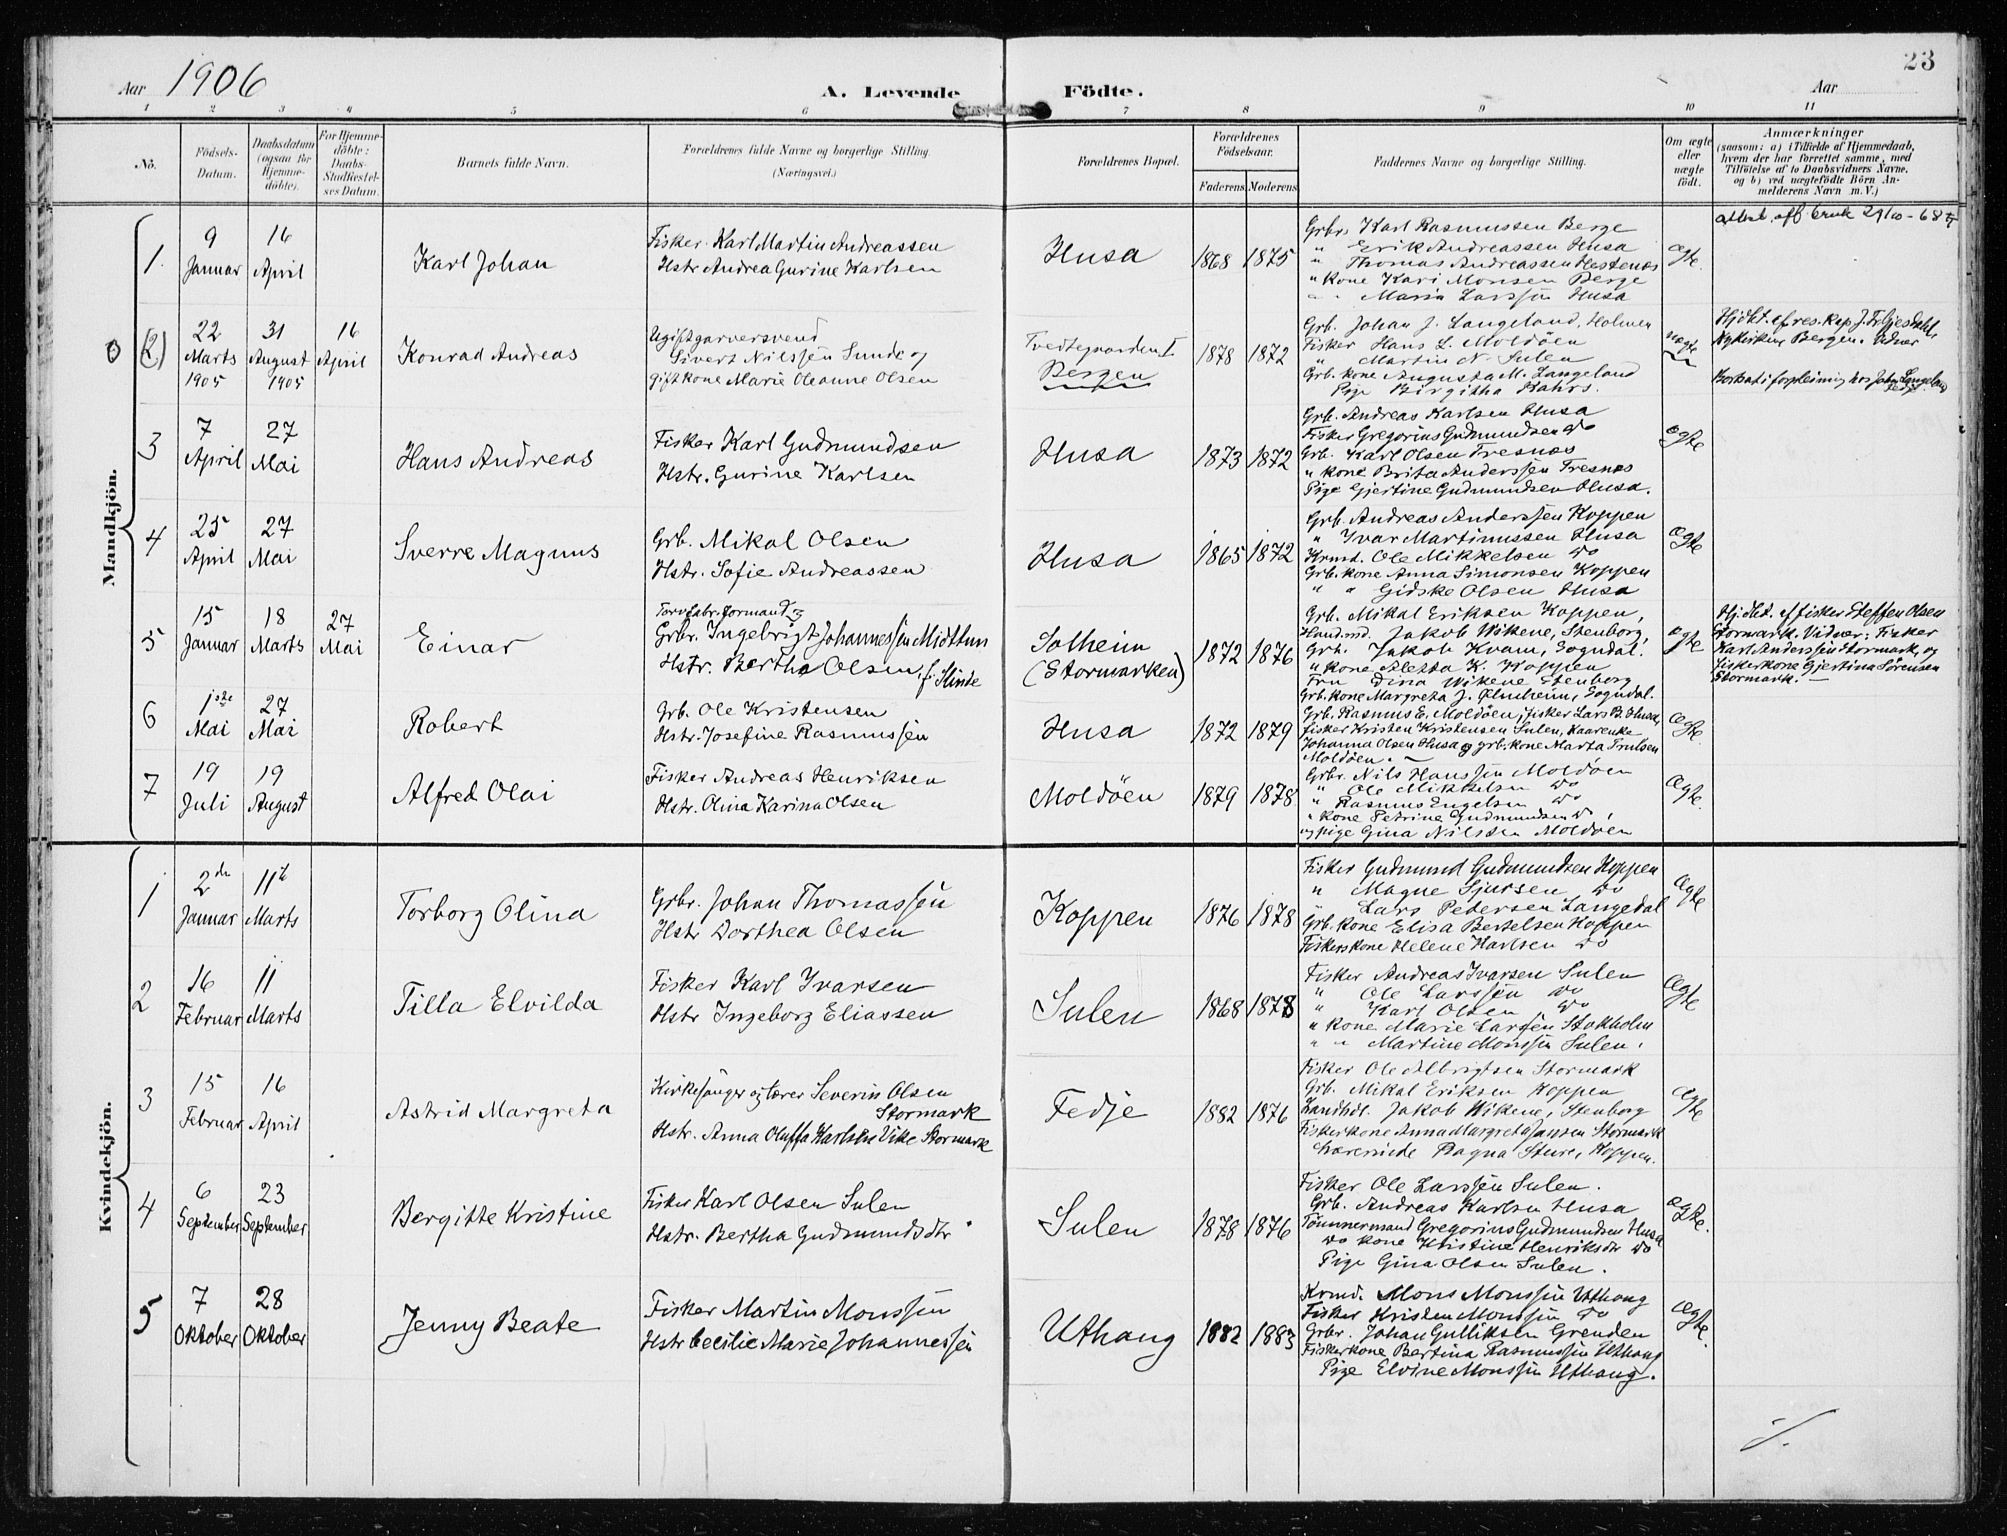 23
Aar 1906
A. Levende Födte.
Aar
1 2 3 4 5 6 7 8 9 10 11
Nö.
Födsels-Datum.
Daabsdatum (ogsaa for Hjemmedöbte).
For Hjemmedöbte: Daabs-Stadfæstelses Datum.
Barnets fulde Navn.
Forældrenes fulde Navne og borgerlige Stilling. (Næringsvei.)
Forældrenes Bopæl.
Forældrenes Födselsaar.
Faderens Moderens
Faddernes Navne og borgerlige Stilling.
Om ægte eller uægte födt.
Anmærkninger
(saasom: a) i Tilfælde af Hjemmedaab, hvem der har forrettet samme, med Tilföielse af to Daabsvidners Navne, og b) ved uægtefödte Börn Anmelderens Navn m. V.)
Mandkjön.
1.
9 Januar
16 April
Karl Johan
Fisker Karl Martin Andreassen
Hstr Andrea Gurine Karlsen
Husa
1868 1875
Grbr. Karl Rasmussen Berge
" Erik Andreassen Husa
" Thomas Andreassen Hestenæs
" kone Kari Monsen Berge
" " Maria Larssen Husa
ægte.
0 (2)
22 Marts 1905
31 August 1905
16 April
Konrad Andreas
Ugift garversvend
Sivert Nilssen Sunde og
gift kone Marie Oleanne Olsen
Tvedtegaarden I
Bergen
1878 1872
Grb. Johan J. Langeland, Holmen
Fisker Hans L. Moldöen
" Martin N. Sulen
Grb. kone Augusta M. Langeland
Pige Birgitha Kahrs.
uægte
Hjdbt. af res. kap. J. Fr. Gjesdahl,
Nykirken, Bergen.
Bortsat i forpleining hos Johan Langeland
3
7 April
27 Mai
Hans Andreas
Fisker Karl Gudmundsen
Hstr. Gurine Karlsen
Husa
1873 1872
Grb. Andreas Karlsen Husa
Fisker Gregorius Gudmundsen do
Grb. Karl Olsen Tresnæs
" kone Brita Anderssen Tresnæs
Pige Gjertine Gudmundsen Husa.
ægte
4
25 April
27 Mai
Sverre Magnus
Grb. Mikal Olsen
Hstr. Sofie Andreassen
Husa
1865 1872
Grb. Andreas Anderssen Koppen
" Ivar Martinussen Husa
Krmd. Ole Mikkelsen do
Grb. kone Anna Simonsen Koppen
" " Gidske Olsen Husa
ægte
5
15 Januar
18 Marts
27 Mai
Einar
Torvfabr. formand og
Grbr. Ingebrigt Johannessen Midttun
Hstr. Bertha Olsen, f. Slinde
Solheim
(Stormarken)
1872 1876
Grb. Mikal Eriksen Koppen,
Handmd. Jakob Wikene, Stenborg,
Grb. Jakob Kvam, Sogndal.
" kone Aletta K. Koppen
Fru Dina Wikene Stenborg
Grb. kone Margreta J. Ølmheim, Sogndal.
ægte
Hjdbt. af fisker Steffen Olsen
Stormark. Vidner: Fisker
Karl Anderssen Stormark, og
fiskerkone Gjertina Sörensen
Stormark. —
6
1ste Mai
27 Mai
Robert
Grb. Ole Kristensen
Hstr. Josefine Rasmussen
Husa
1872 1879
Grb. Rasmus E. Moldöen, fisker Lars B. Husa,
fisker Kristen Kristensen Sulen, kaarenke
Johanna Olsen Husa og grb. kone Marta Trulsen
Moldöen. —
ægte.
7
19 Juli
19 August
Alfred Olai
Fisker Andreas Henriksen
Hstr. Olina Karina Olsen
Moldöen
1879 1878
Grbr. Nils Hanssen Moldöen
" Ole Mikkelsen do
" Rasmus Engelsen do
" kone Petrine Gudmundsen do,
og pige Gina Nilssen Moldöen
Ægte.
Kvindekjön.
1
2den Januar
11te Marts
Torborg Olina
Grbr. Johan Thomassen
Hstr Dorthea Olsen
Koppen
1876 1878
Fisker Gudmund Gudmundsen Koppen
" Magne Sjursen do
" Lars Petersen Langedal
Grb. kone Elisa Bertelsen Koppen
Fiskerskone Helene Karlsen do
Ægte
2
16 Februar
11 Marts
Tilla Elvilda
Fisker Karl Ivarsen
Hstr Ingeborg Eliassen
Sulen
1868 1878
Fisker Andreas Ivarsen Sulen
" Ole Larssen do
" Karl Olsen do
" kone Marie Larsen Stokholm
" " Martine Monssen Sulen.
Ægte
3
15 Februar
16 April
Astrid Margreta
Kirkesanger og lærer Severin Olsen
Stormark
Hstr. Anna Oluffa Karlsen Vike Stormark
Fedje
1882 1876
Fisker Ole Albrigtsen Stormark
Grb. Mikal Eriksen Koppen
Handhdl. Jakob Wikene, Stenborg
Fiskerkone Anna Margreta Jansen Stormark
Lærerinde Ragna Sture, Koppen.
Ægte
4
6 September
23 September
Bergitte Kristine
Fisker Karl Olsen Sulen
Hstr. Bertha Gudmundsdtr.
Sulen
1878 1876
Fisker Ole Larssen Sulen.
Grb. Andreas Karlsen Husa
Tömmermand Gregorius Gudmundsen Husa
do kone Kristine Henriksdtr do
Pige Gina Olsen Sulen.
ægte.
5
7 Oktober
28 Oktober
Jenny Beate
Fisker Martin Monssen
Hstr Cecilie Marie Johannessen
Uthaug
1882 1883
Krmd. Mons Monssen Uthaug
Fisker Kristen Monssen do
Grbr. Johan Gulliksen Grenden
Fiskerkone Bertina Rasmussen Uthaug
Pige Elvine Monssen Uthaug.
Ægte.